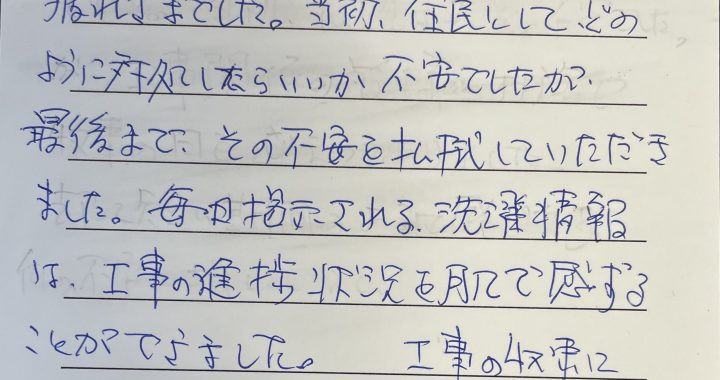 疲れさまでした。当初、住民として、どの
ように対処したらいいか不安でしたが、
最後まで、その不安を払拭していただき
ました。毎日掲示される、洗濯情報
は、工事の進捗状況を肌で感ずる
ことができました。 工事の